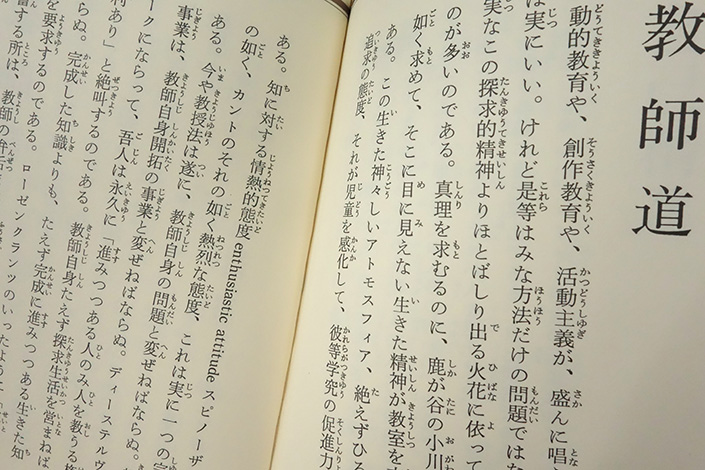 教師道
動的教育や、創作教育や、活動主義が、盛んに唱
は実にいい。けれど是等はみな方法だけの問題ではな
実なこの探求的精神よりほとばしり出る火花に依って
のが多いのである。真理を求むるのに、鹿が谷の小川
如く求めて、そこに目に見えない生きた精神が教室を
ある。この生きた神々しいアトモスフィア、絶えずひろ
追求の態度、それが児童を感化して、彼等学究の促進力
ある。知に対する情熱的態度 enthusiastic attitude スピノーザ
の如く、カントのそれの如く熱烈な態度、これは実に一つの
ある。今や教授法は遂に、教師自身の問題と変ぜねばならぬ。
事業は、教師自身開拓の事業と変ぜねばならぬ。ディーステルヴ
ークにならって、吾人は永久に「進みつつある人のみ人を教うる
利あり」と絶叫するのである。教師自身たえず探求生活を営まねば
ならぬ。完成した知識よりも、たえず完成に進みつつある生きた知
を要求するのである。ローゼンクランツのいったように
する所は、教師の